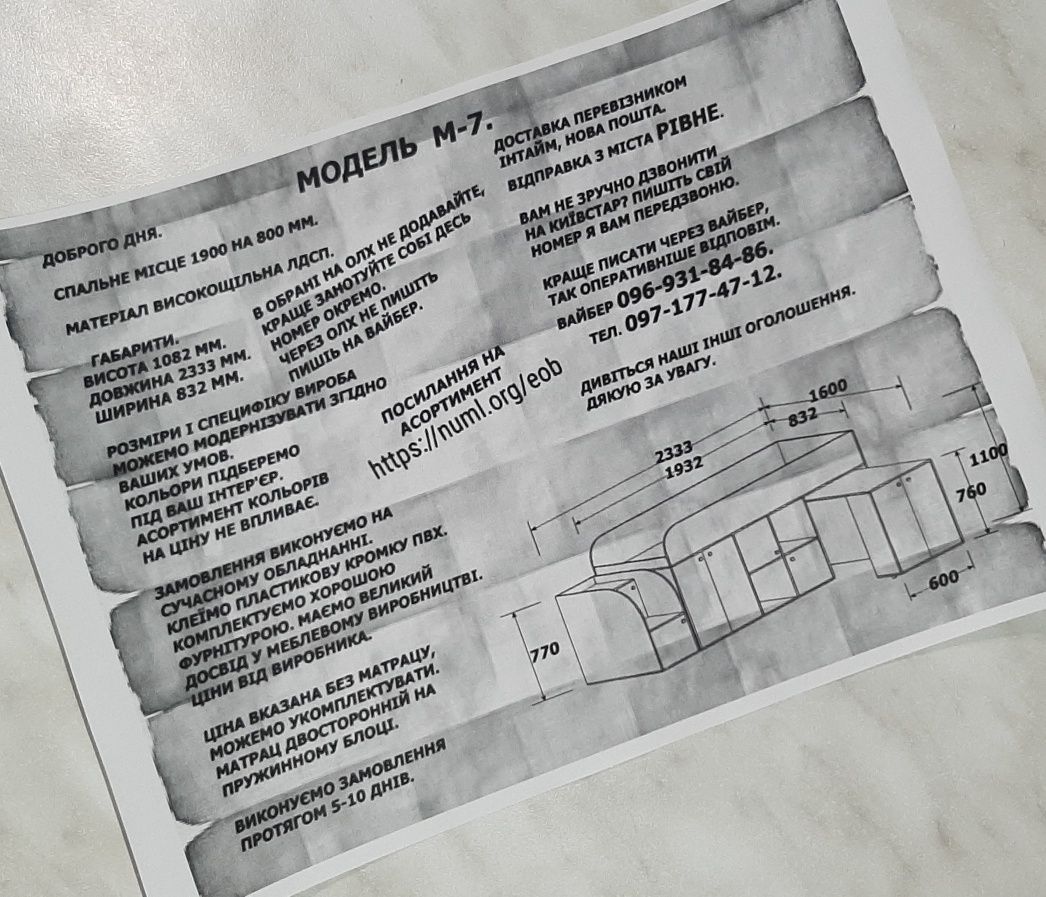 МОДЕЛЬ М-7.
ДОБРОГО ДНЯ.
СПАЛЬНЕ МІСЦЕ 1900 НА 800 ММ.
МАТЕРІАЛ ВИСОКОЩІЛЬНА ЛДСП.
ГАБАРИТИ.
ВИСОТА 1082 ММ.
ДОВЖИНА 2333 ММ.
ШИРИНА 832 ММ.
В ОБРАНІ НА ОЛХ НЕ ДОДАВАЙТЕ,
КРАЩЕ ЗАНОТУЙТЕ СОБІ ДЕСЬ
НОМЕР ОКРЕМО.
ЧЕРЕЗ ОЛХ НЕ ПИШІТЬ
ПИШІЬ НА ВАЙБЕР.
РОЗМІРИ І СПЕЦИФІКУ ВИРОБА
МОЖЕМО МОДЕРНІЗУВАТИ ЗГІДНО
ВАШИХ УМОВ.
КОЛЬОРИ ПІДБЕРЕМО
ПІД ВАШ ІНТЕР'ЄР.
АСОРТИМЕНТ КОЛЬОРІВ
НА ЦІНУ НЕ ВПЛИВАЄ.
ЗАМОВЛЕННЯ ВИКОНУЄМО НА
СУЧАСНОМУ ОБЛАДНАННІ.
КЛЕЇМО ПЛАСТИКОВУ КРОМКУ ПВХ.
КОМПЛЕКТУЄМО ХОРОШОЮ
ФУРНІТУРОЮ. МАЄМО ВЕЛИКИЙ
ДОСВІД У МЕБЛЕВОМУ ВИРОБНИЦТВІ.
ЦІНИ ВІД ВИРОБНИКА.
ЦІНА ВКАЗАНА БЕЗ МАТРАЦУ,
МОЖЕМО УКОМПЛЕКТУВАТИ.
МАТРАЦ ДВОСТОРОННІЙ НА
ПРУЖИННОМУ БЛОЦІ.
ВИКОНУЄМО ЗАМОВЛЕННЯ
ПРОТЯГОМ 5-10 ДНІВ.
ПОСИЛАННЯ НА
АСОРТИМЕНТ
https://numl.org/eob
ДОСТАВКА ПЕРЕВІЗНИКОМ
ІНТАЙМ, НОВА ПОШТА.
ВІДПРАВКА З МІСТА РІВНЕ.
ВАМ НЕ ЗРУЧНО ДЗВОНИТИ
НА КИЇВСТАР? ПИШІТЬ СВІЙ
НОМЕР Я ВАМ ПЕРЕДЗВОНЮ.
КРАЩЕ ПИСАТИ ЧЕРЕЗ ВАЙБЕР,
ТАК ОПЕРАТИВНІШЕ ВІДПОВІМ.
ВАЙБЕР 096-931-84-86.
ТЕЛ. 097-177-47-12.
ДИВІТЬСЯ НАШІ ІНШІ ОГОЛОШЕННЯ.
ДЯКУЮ ЗА УВАГУ.
1600
832
2333
1932
1100
760
600
770